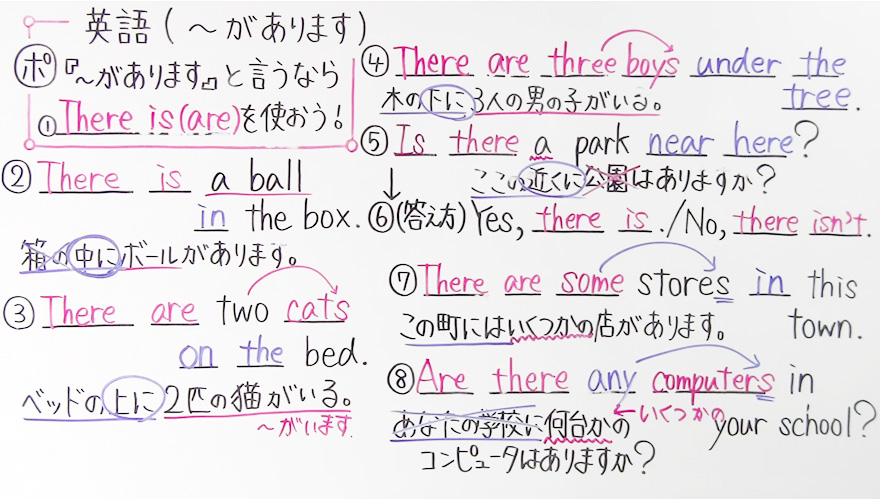 英語(～があります)
ポ『～があります』と言うなら
①There is(are)を使おう!
②There is a ball
in the box.
箱の中にボールがあります。
③There are two cats
on the bed.
ベッドの上に2匹の猫がいる。
～がいます
④There are three boys under the
tree.
木の下に3人の男の子がいる。
⑤Is there a park near here?
ここの近くに公園はありますか?
↓
⑥(答え方)Yes, there is./No, there isn't.
⑦There are some stores in this
town.
この町にはいくつかの店があります。
⑧Are there any computers in
your school?
←いくつかの
あなたの学校に何台かの
コンピュータはありますか?